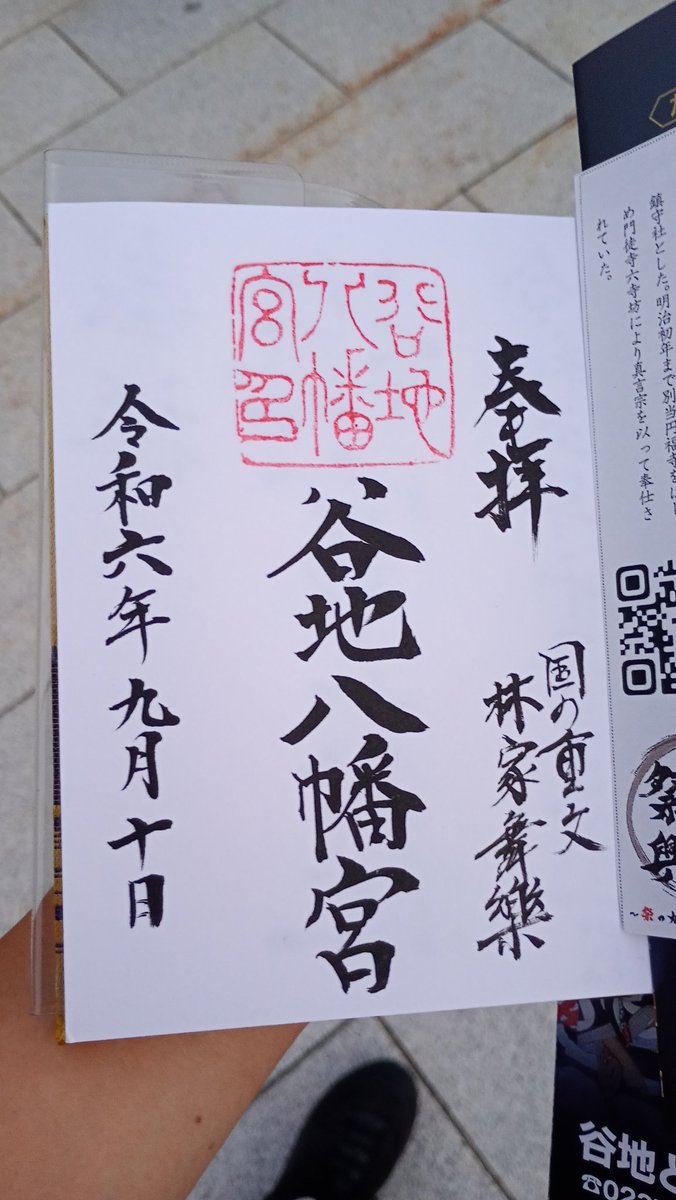 奉拝
国の重文
林家舞樂
谷地八幡宮
令和六年九月十日
谷地
八幡
宮印
鎮守社とした。明治初年まで別当円福寺をはじ
め門徒寺六寺坊により真言宗を以って奉仕さ
れていた。
谷地
☎